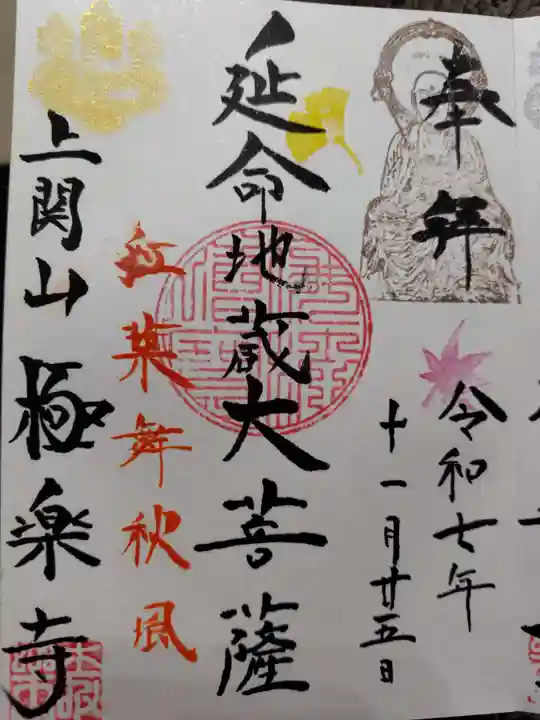 奉拝
令和七年
十一月廿五日
延命地蔵大菩薩
紅葉舞秋風
上関山極楽寺